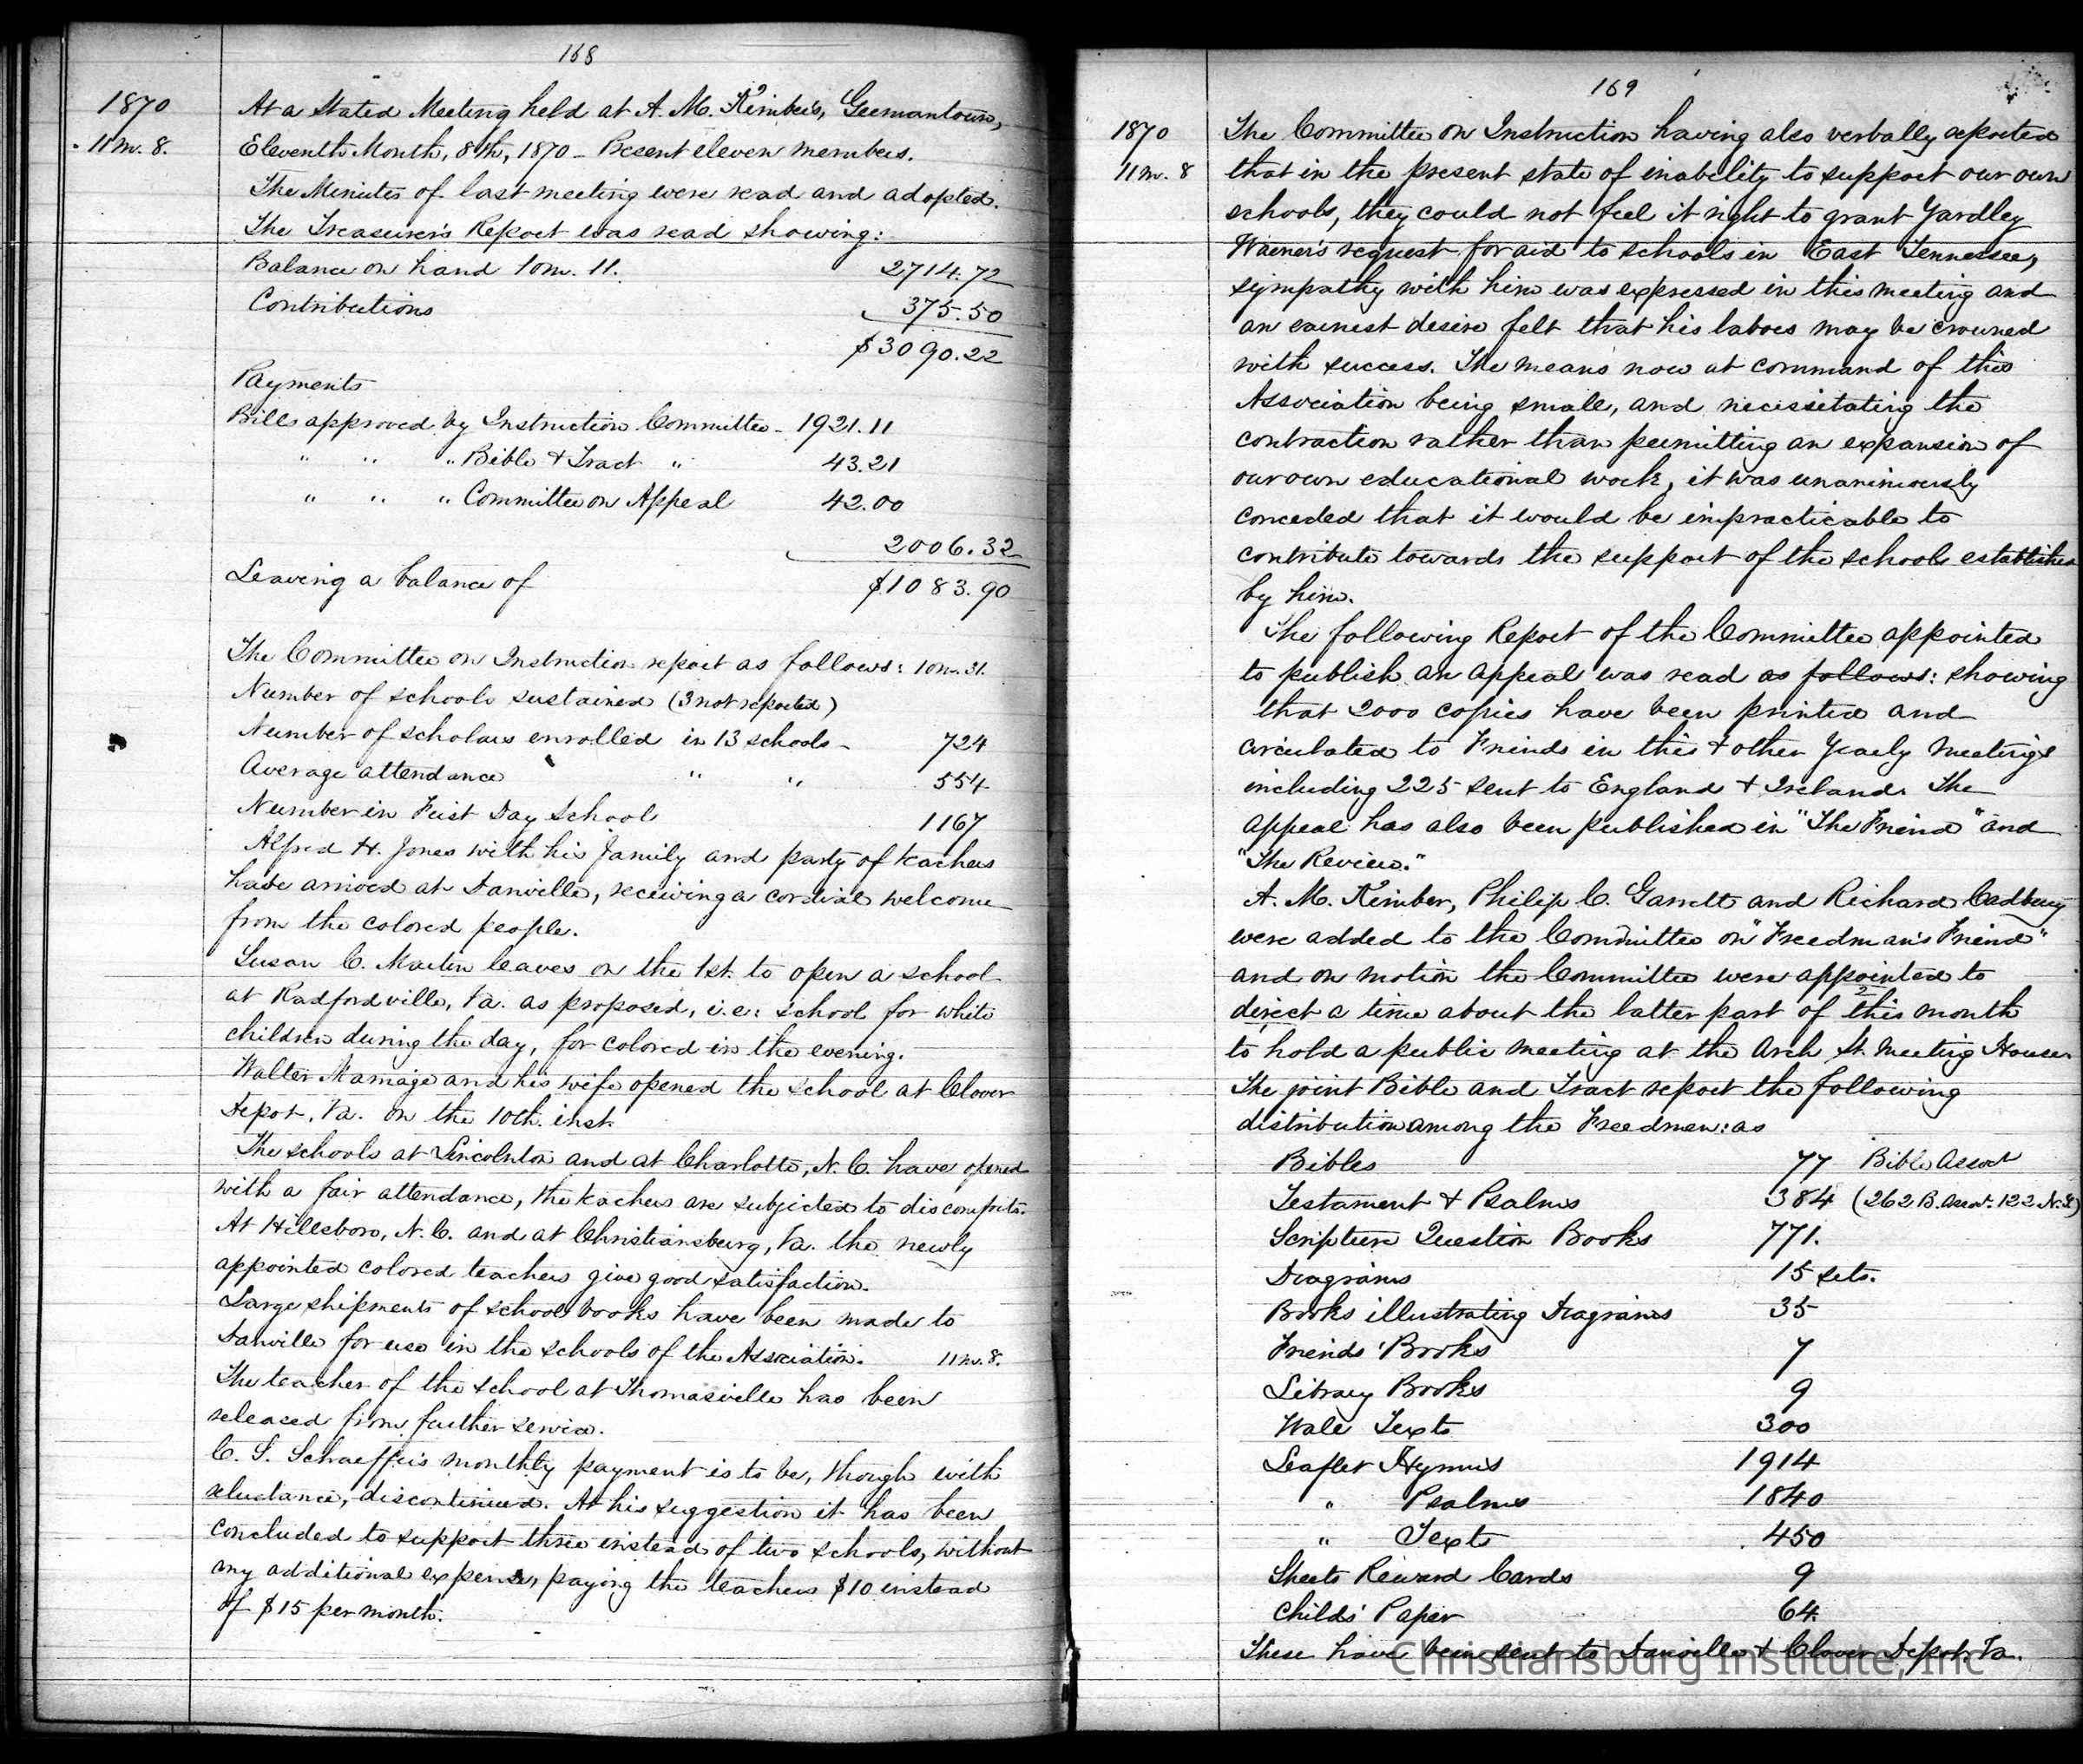 168
1870
11m. 8.
At a Stated Meeting held at A. M. Kimber's, Germantown,
Eleventh Month, 8th, 1870 - Present eleven members.
The Minutes of last meeting were read and adopted.
The Treasurer's Report was read showing:
Balance on hand 10m. 11. 2714.72
Contributions 375.50
$3090.22
Payments
Bills approved by Instruction Committee - 1921.11
" " " Bible & Tract " 43.21
" " " Committee on Appeal 42.00
2006.32
Leaving a balance of $1083.90
The Committee on Instruction report as follows: 10m. 31.
Number of schools sustained (3 not reported)
Number of scholars enrolled in 13 schools - 724
Average attendance " " 554
Number in First Day School 1167
Alfred H. Jones with his family and party of teachers
have arrived at Danville, receiving a cordial welcome
from the colored people.
Susan C. Martin leaves on the 1st. to open a school
at Radfordville, Va. as proposed, i.e: school for white
children during the day, for colored in the evening.
Walter Marriage and his wife opened the school at Clover
Depot, Va. on the 10th. inst.
The schools at Lincolnton and at Charlotte, N. C. have opened
with a fair attendance, the teachers are subjected to discomforts.
At Hillsboro, N. C. and at Christiansburg, Va. the newly
appointed colored teachers give good satisfaction.
Large shipments of school books have been made to
Danville for use in the schools of the Association. 11m. 8.
The teacher of the school at Thomasville has been
released from further service.
C. S. Schaeffer's monthly payment is to be, though with
reluctance, discontinued. At his suggestion it has been
concluded to support three instead of two schools, without
any additional expense, paying the teachers $10 instead
of $15 per month.
169
1870
11m. 8
The Committee on Instruction having also verbally reported
that in the present state of inability to support our own
schools, they could not feel it right to grant Yardley
Warner's request for aid to schools in East Tennessee,
sympathy with him was expressed in this meeting and
an earnest desire felt that his labors may be crowned
with success. The means now at command of this
Association being small, and necessitating the
contraction rather than permitting an expansion of
our own educational work, it was unanimously
conceded that it would be impracticable to
contribute towards the support of the schools established
by him.
The following Report of the Committee appointed
to publish an appeal was read as follows: showing
that 2000 copies have been printed and
circulated to Friends in this & other Yearly Meetings
including 225 sent to England & Ireland. The
appeal has also been published in "The Friend" and
"The Review."
A. M. Kimber, Philip C. Garrett and Richard Cadbury
were added to the Committee on "Freedman's Friend"
and on motion the Committee were appointed to
direct a time about the latter part of this month
to hold a public meeting at the Arch St. Meeting House.
The joint Bible and Tract report the following
distribution among the Freedmen: as
Bibles 77 Bible Assoct
Testament & Psalms 384 (262 B. Assoct. 122 N.Y.)
Scripture Question Books 771.
Diagrams 15 sets.
Books illustrating Diagrams 35
Friends' Books 7
Library Books 9
Wall Texts 300
Leaflet Hymns 1914
" Psalms 1840
" Texts 450
Sheets Reward Cards 9
Childs' Paper 64.
These have been sent to Danville & Clover Depot, Va.
Christiansburg Institute, Inc